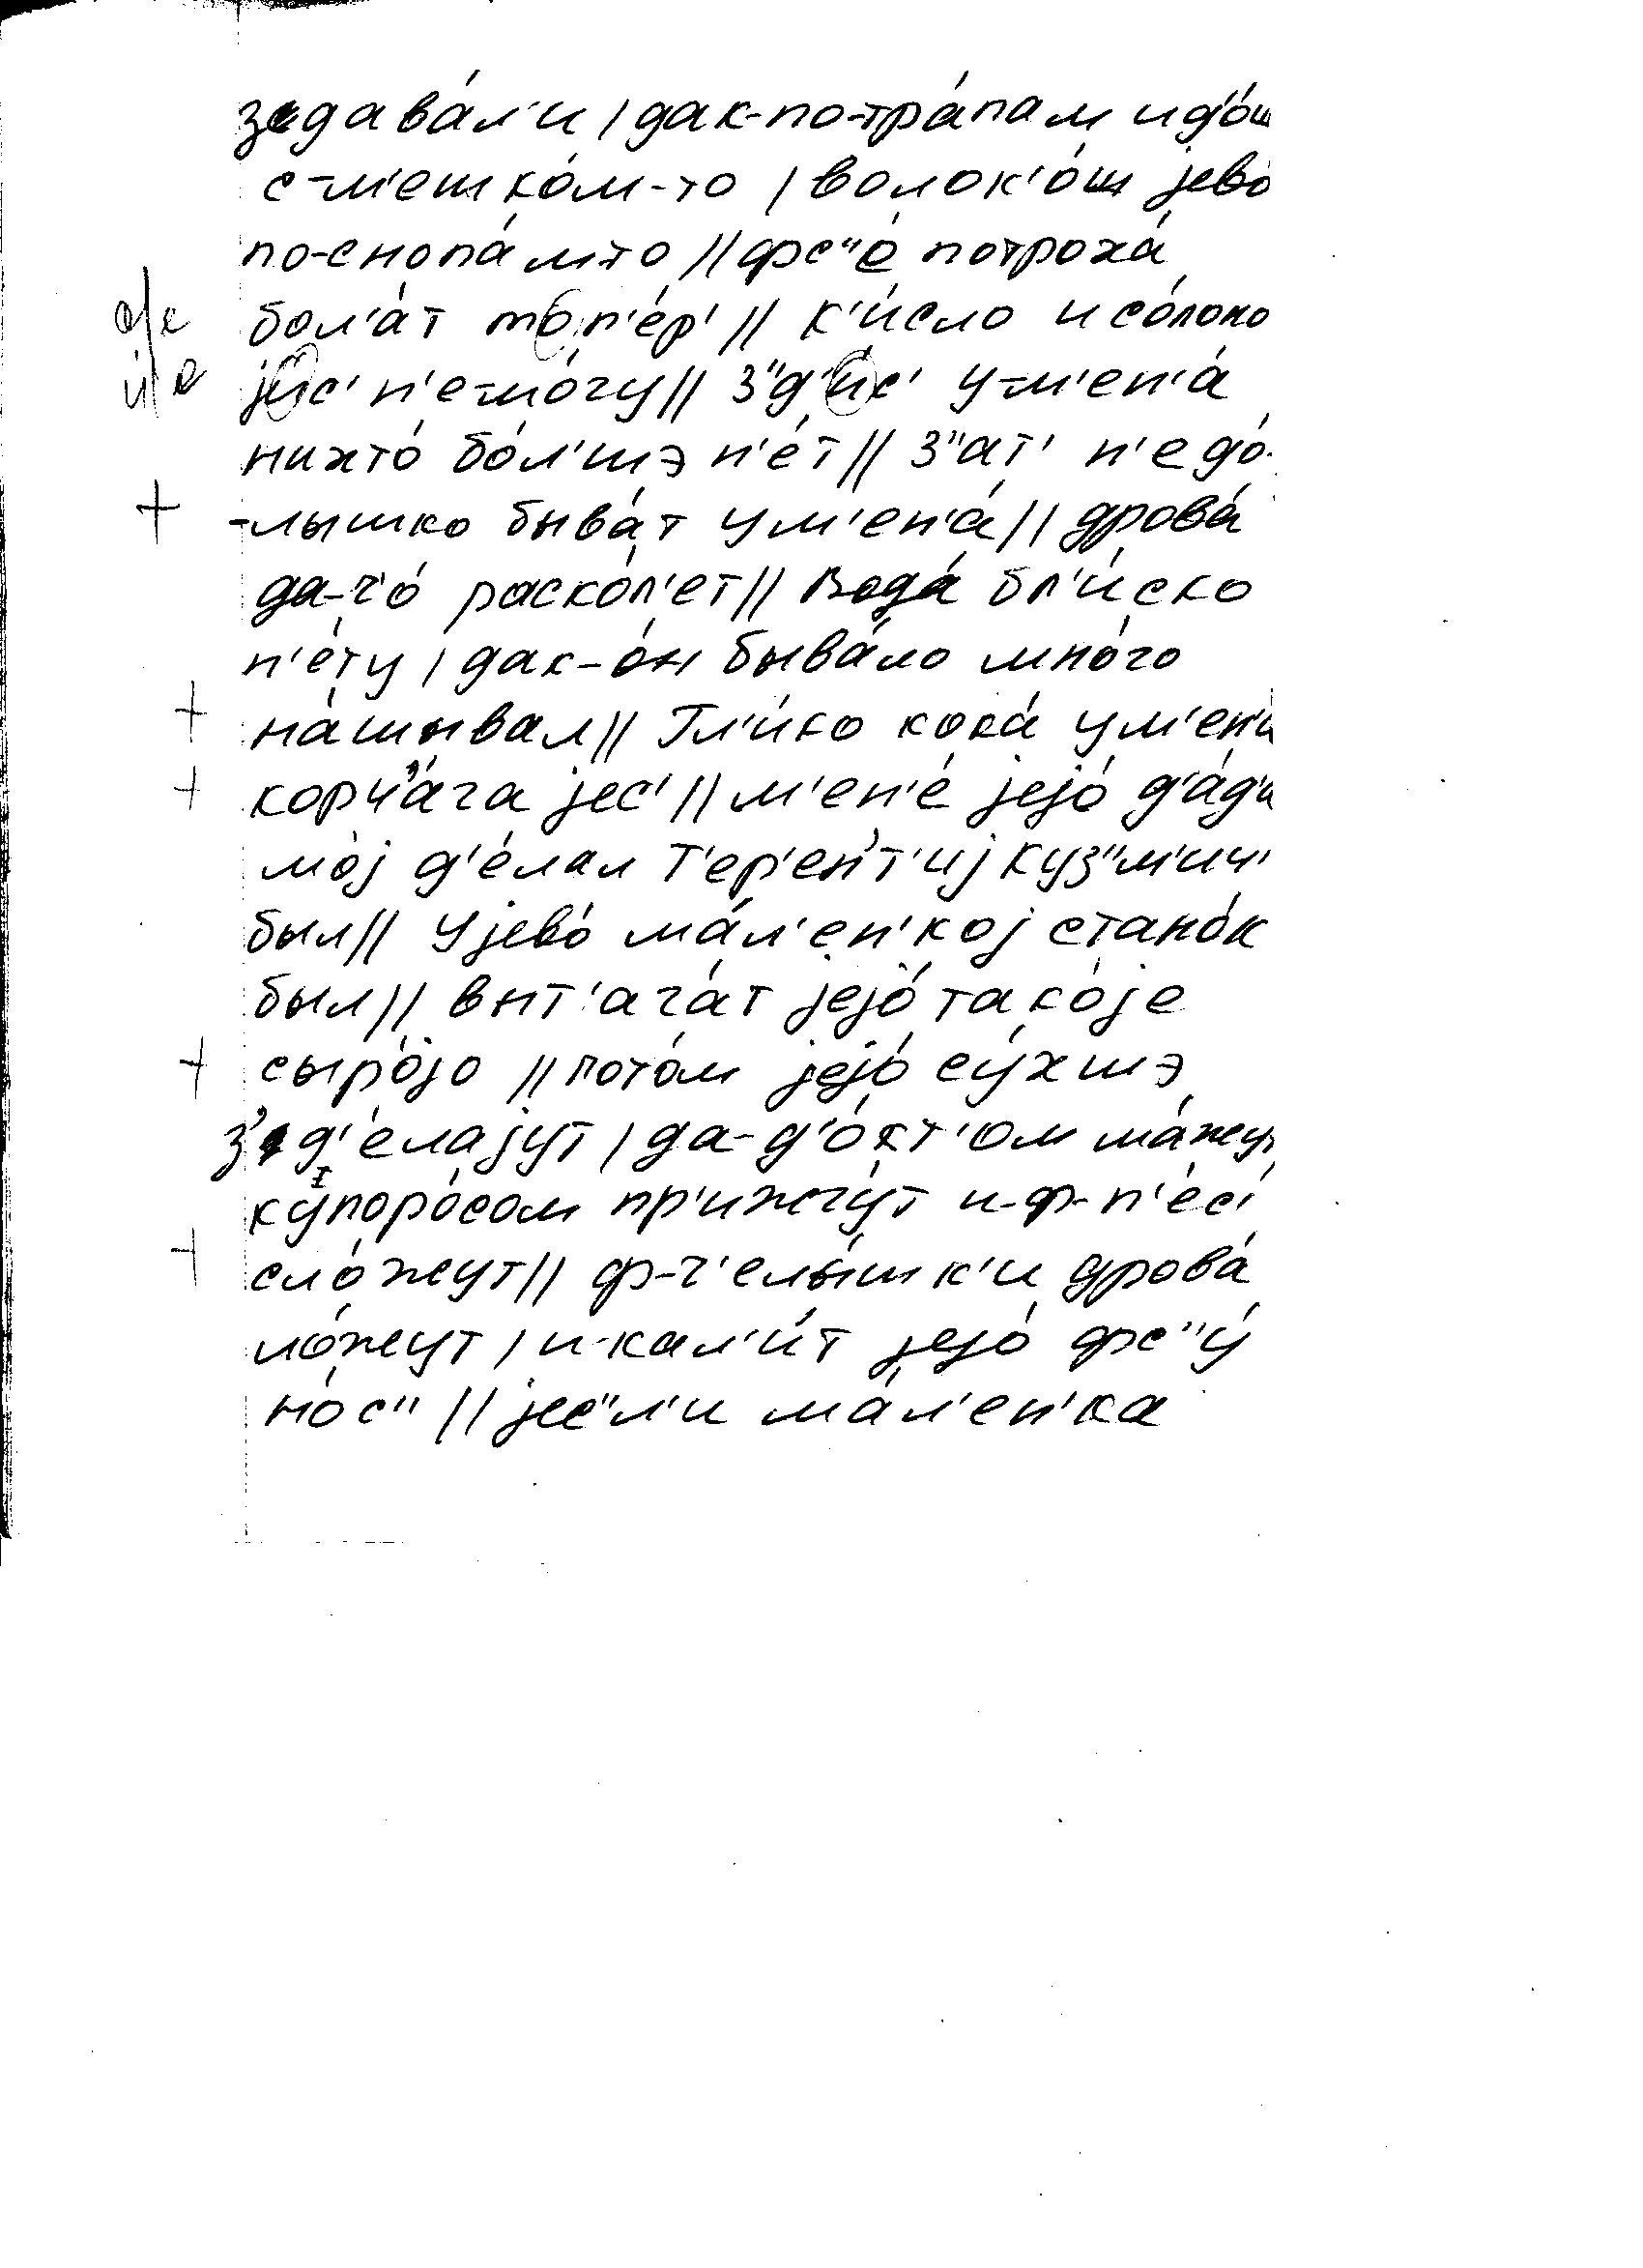 задава́л'и / дак-по-тра́пам ид'о́ш
с-м'ешко́м-то / волок'о́ш јево́
по-снопа́м-то // фс"е́ потроха́
о/е бол'а́т топ'е́р' // к'и́сло и со́лоно
и/е јис' н'е-мо́гу // з"д'ис' у-м'ен'а́
нихто́ бо́л'шэ н'е́т // з"ат' н'едо́-
+ -лышко быва́т у м'ен'а́ // дрова́
да-ч'о́ раско́л'ет // вода́ бл'и́ско
н'е́ту / дак-о́н быва́ло мно́го
+ на́шывал // Гл'и́ко кока́ у м'ен'а
+ корч'а́га јес' // м'ен'е́ јејо́ д'а́д'а
мо́ј д'е́лал Т'ер'е́нт'иј Куз"м'ич'
был // У јево́ ма́л'ен'кој стано́к
был // выт'ага́т јејо́ тако́је
+ сыро́јо // пото́м јејо́ су́хшэ
зд'е́лајут / да-д'о́хт'ом ма́жут
купоро́сом пр'ижгу́т и-ф-п'е́с'
+ сло́жут // ф-ч'елы́шк'и дрова́
ло́жут / и-кал'и́т јејо́ фс"у́
но́с" // јес"л'и ма́л'ен'ка